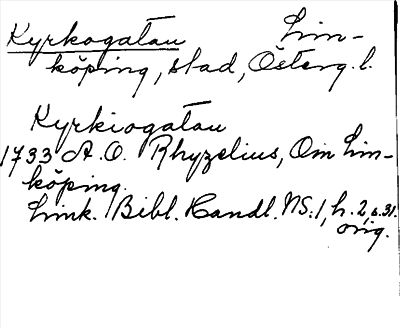 Kyrkogatan Lin-
köping, stad, Österg. l.
Kyrkiogatan
1733 A. O. Rhyzelius, Om Lin-
köping.
Link. Bibl. Handl. NS. 1, h. 2, s. 31.
orig.